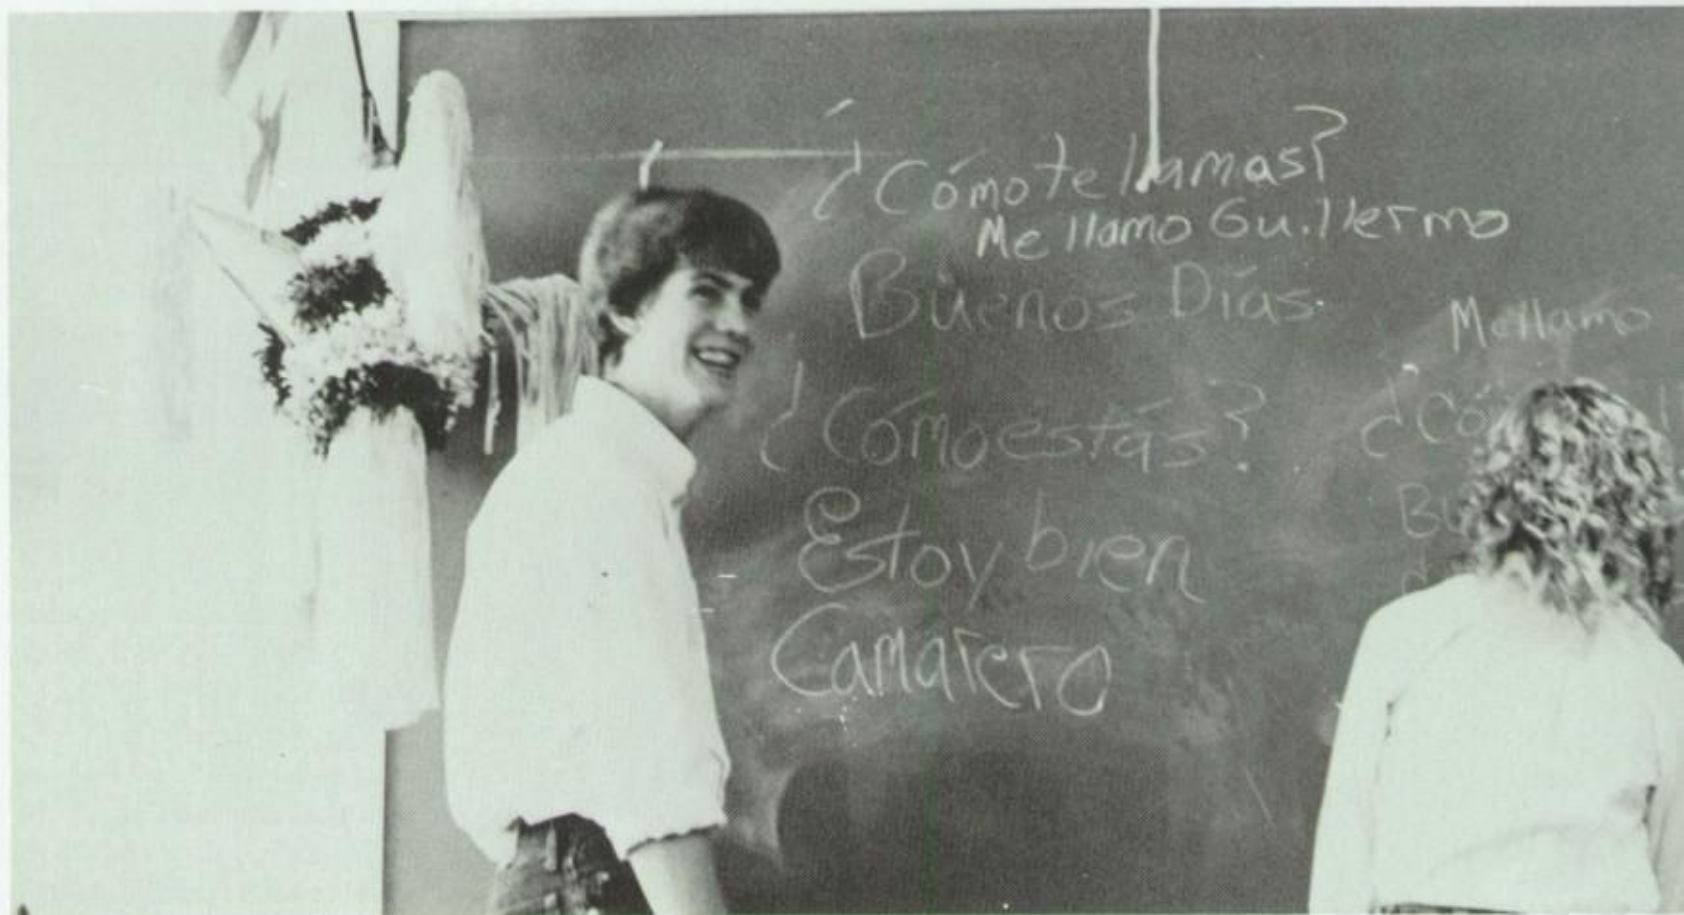 ¿Cómo te llamas?
Me llamo Guillermo
Buenos Días
¿Cómo estás?
Estoy bien
Camarero
Me llamo